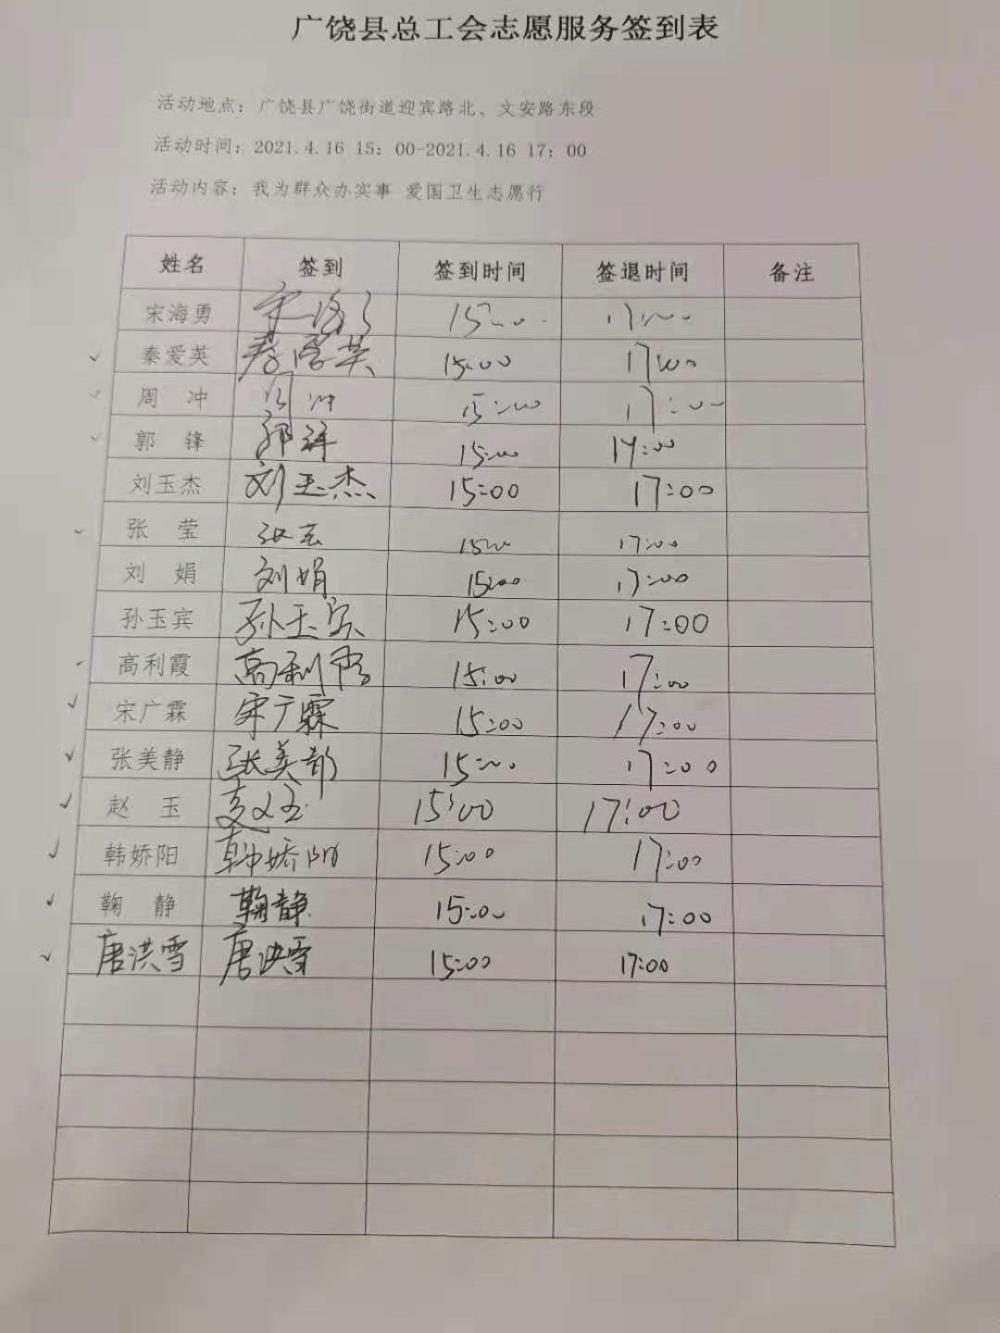 广饶县总工会志愿服务签到表
活动地点：广饶县广饶街道迎宾路北、文安路东段
活动时间：2021.4.16 15：00-2021.4.16 17：00
活动内容：我为群众办实事 爱国卫生志愿行
姓名 签到 签到时间 签退时间 备注
宋海勇 15:00 17:00
秦爱英 秦爱英 15:00 17:00
周 冲 周冲 15:00 17:00
郭 锋 郭锋 15:00 17:00
刘玉杰 刘玉杰 15:00 17:00
张 莹 张莹 15:00 17:00
刘 娟 刘娟 15:00 17:00
孙玉宾 孙玉宾 15:00 17:00
高利霞 高利霞 15:00 17:00
宋广霖 宋广霖 15:00 17:00
张美静 张美静 15:00 17:00
赵 玉 赵玉 15:00 17:00
韩娇阳 韩娇阳 15:00 17:00
鞠 静 鞠静 15:00 17:00
唐洪雪 唐洪雪 15:00 17:00